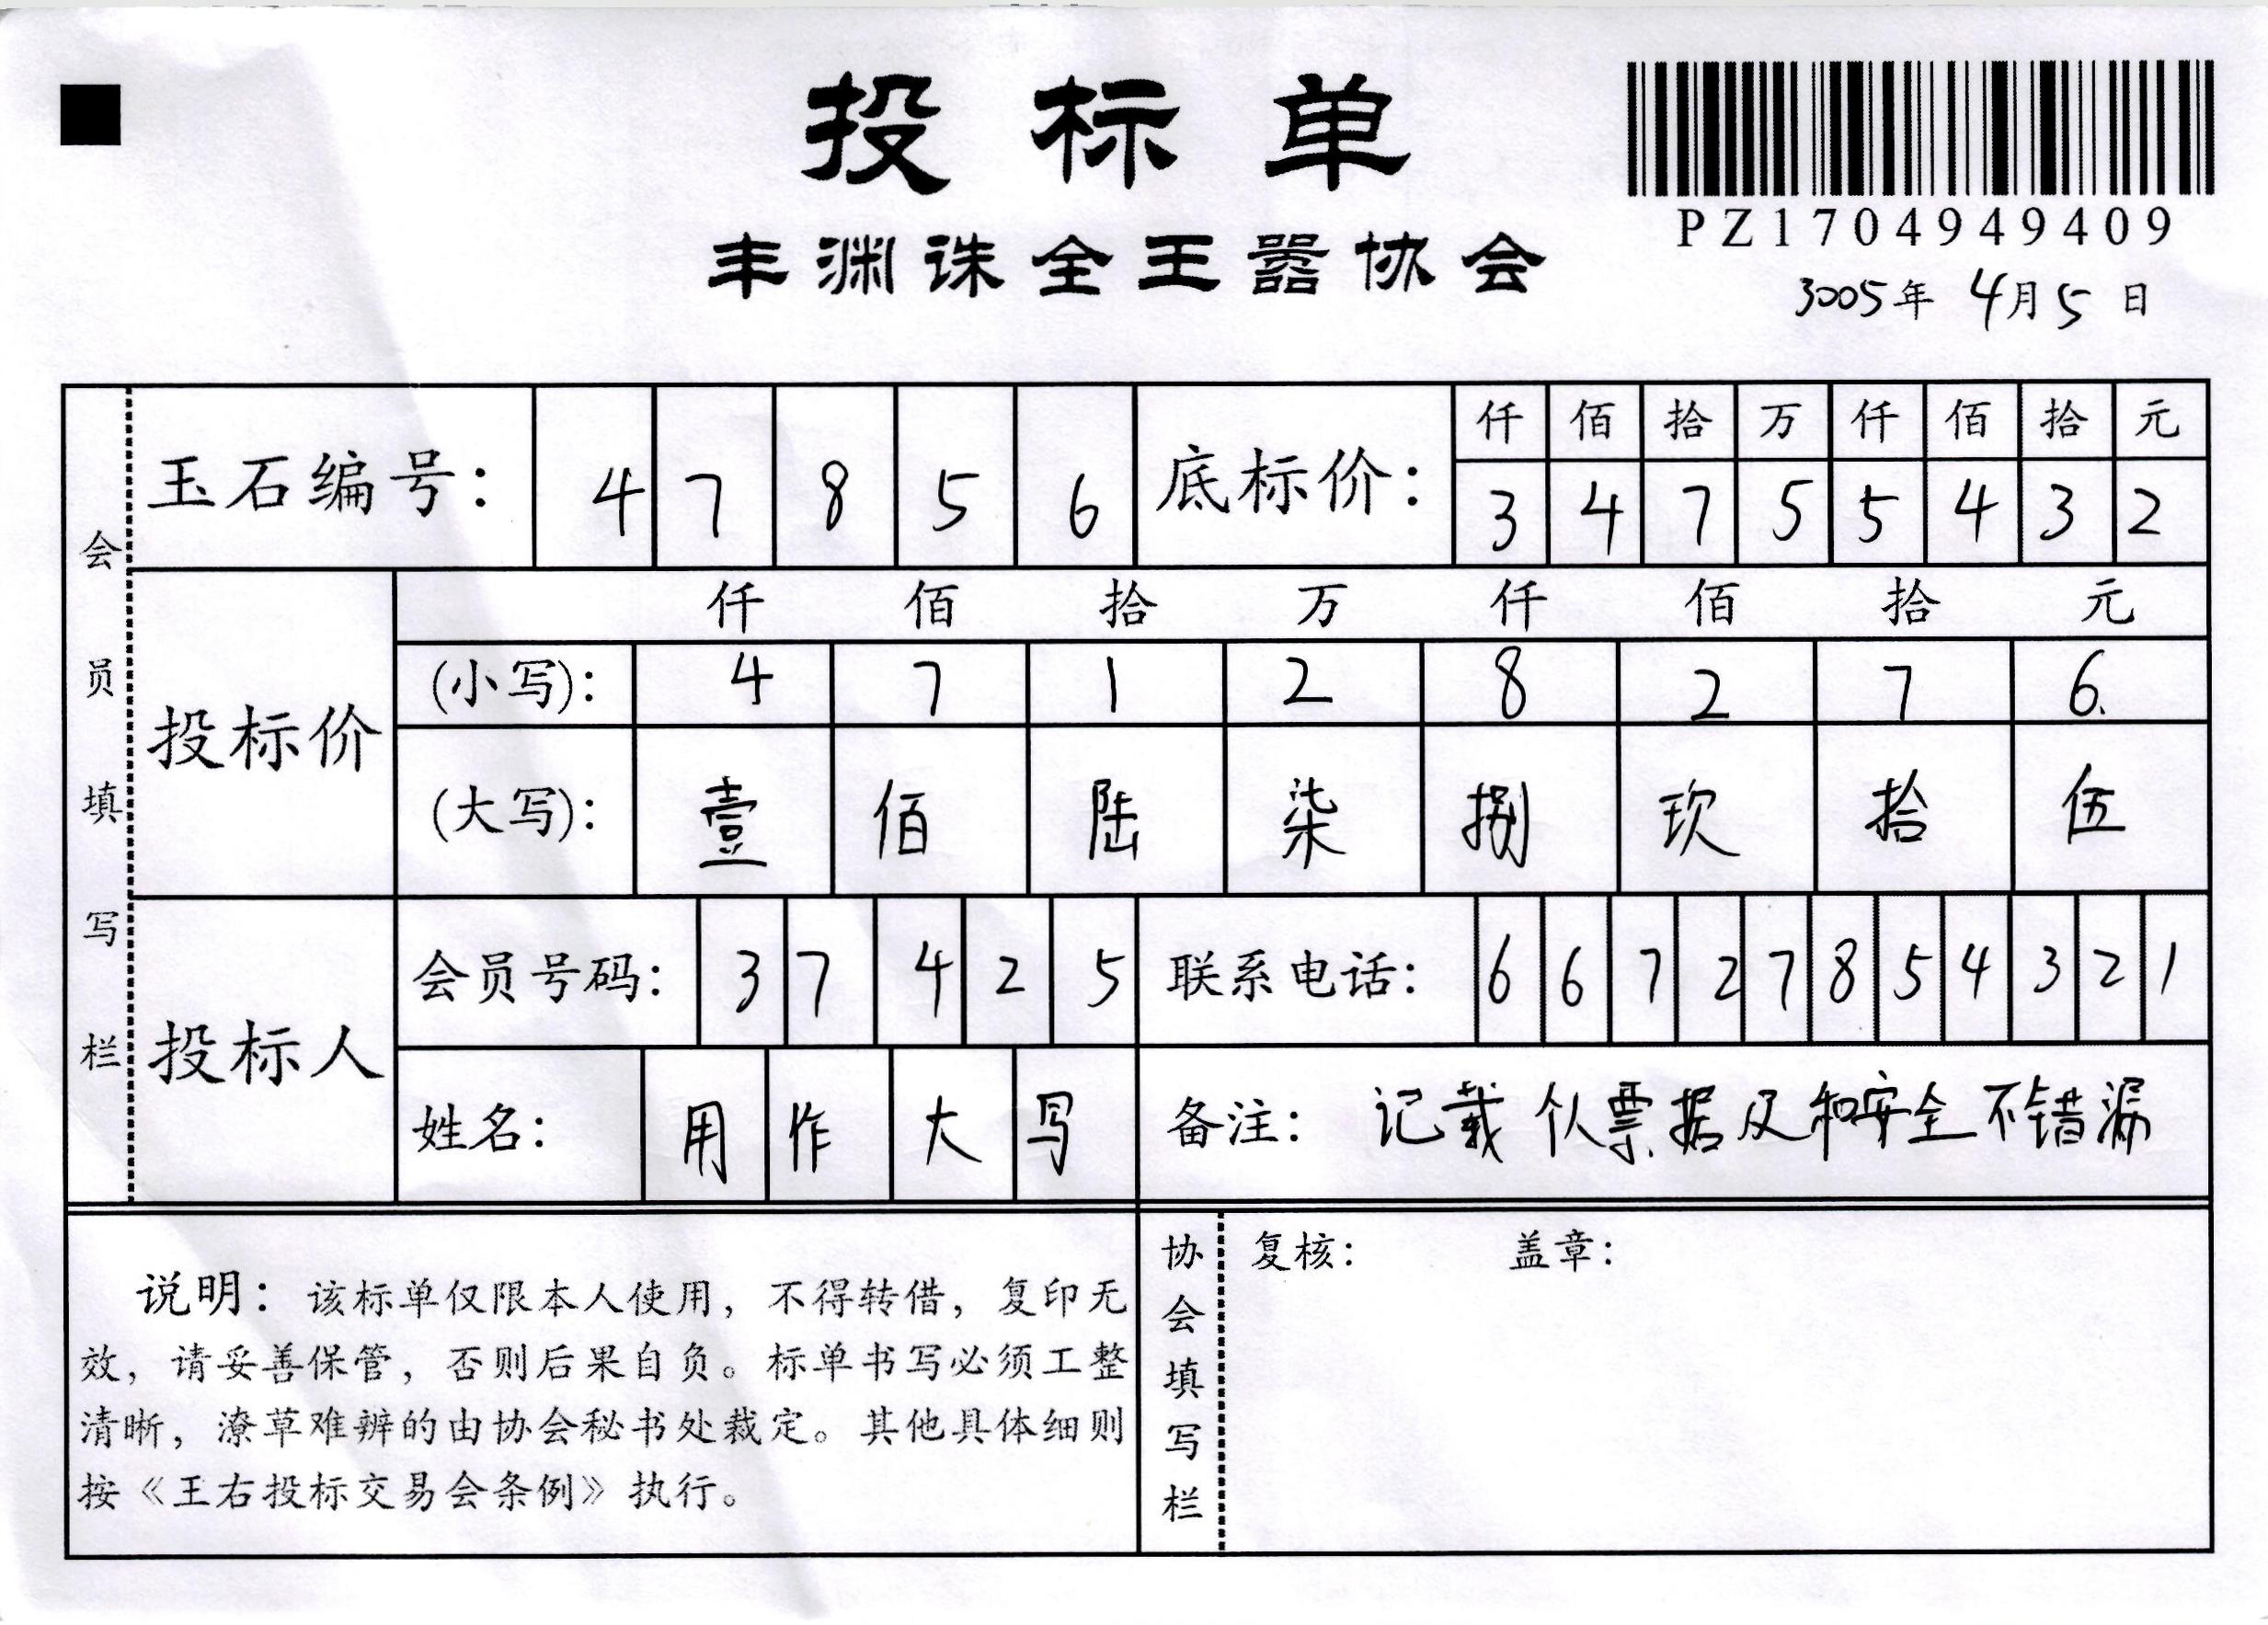 投标单
丰渊诛全王嚣协会
PZ1704949409
3005年 4月5日
会员填写栏
玉石编号： 4 7 8 5 6
底标价： 仟 佰 拾 万 仟 佰 拾 元
3 4 7 5 5 4 3 2
投标价
仟 佰 拾 万 仟 佰 拾 元
(小写)： 4 7 1 2 8 2 7 6.
(大写)： 壹 佰 陆 柒 捌 玖 拾 伍
投标人
会员号码： 3 7 4 2 5
联系电话： 6 6 7 2 7 8 5 4 3 2 1
姓名： 用 作 大 写
备注： 记载 票据及和安全不错漏
说明：该标单仅限本人使用，不得转借，复印无
效，请妥善保管，否则后果自负。标单书写必须工整
清晰，潦草难辨的由协会秘书处裁定。其他具体细则
按《王右投标交易会条例》执行。
协会填写栏
复核： 盖章：